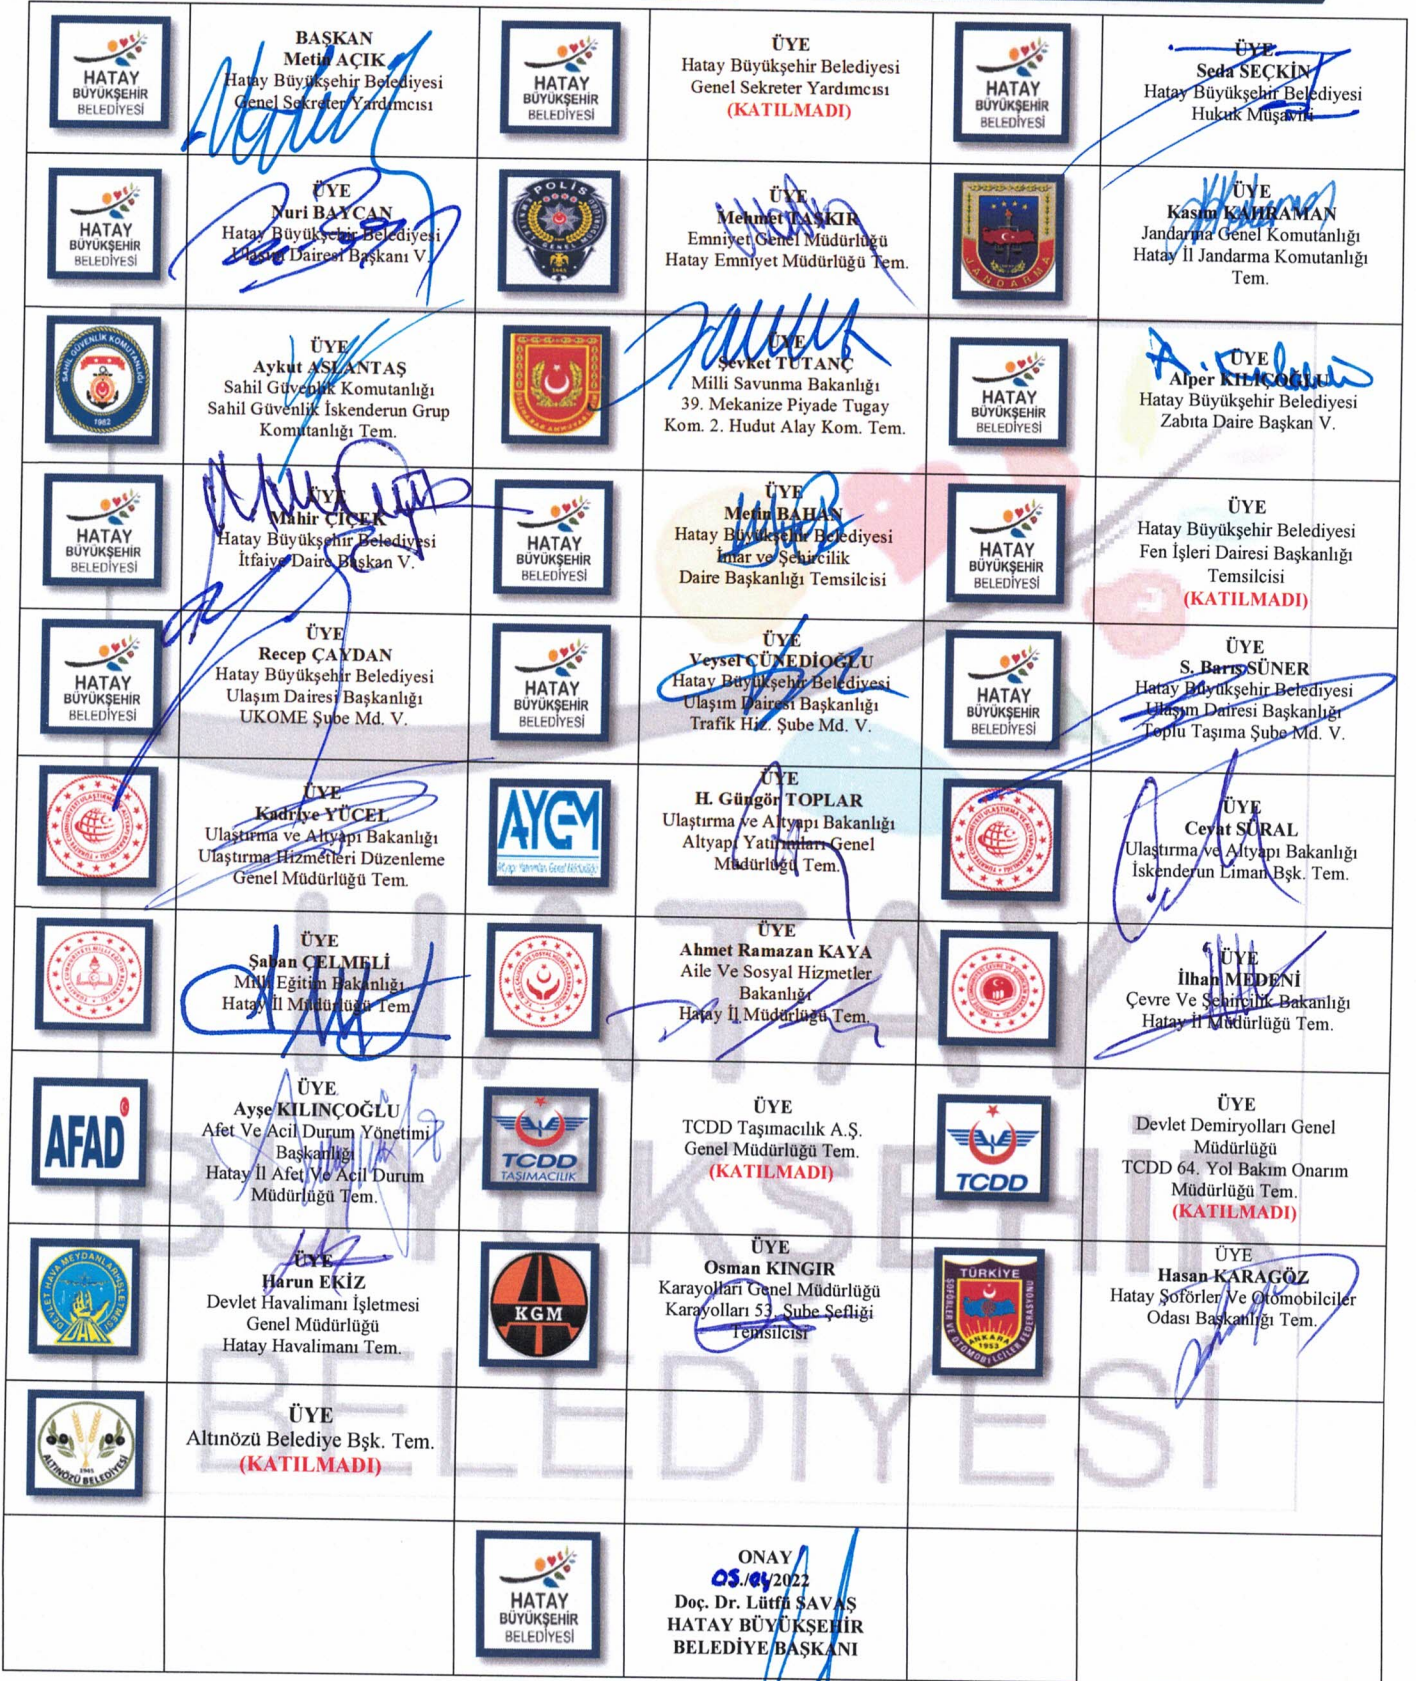 HATAY
BÜYÜKŞEHİR
BELEDİYESİ
BAŞKAN
Metin AÇIK
Hatay Büyükşehir Belediyesi
Genel Sekreter Yardımcısı
HATAY
BÜYÜKŞEHİR
BELEDİYESİ
ÜYE
Hatay Büyükşehir Belediyesi
Genel Sekreter Yardımcısı
(KATILMADI)
HATAY
BÜYÜKŞEHİR
BELEDİYESİ
ÜYE
Seda SEÇKİN
Hatay Büyükşehir Belediyesi
Hukuk Müşaviri
HATAY
BÜYÜKŞEHİR
BELEDİYESİ
ÜYE
Nuri BAYCAN
Hatay Büyükşehir Belediyesi
Ulaşım Dairesi Başkanı V.
POLİS
ÜYE
Mehmet TAŞKIR
Emniyet Genel Müdürlüğü
Hatay Emniyet Müdürlüğü Tem.
JANDARMA
ÜYE
Kasım KAHRAMAN
Jandarma Genel Komutanlığı
Hatay İl Jandarma Komutanlığı
Tem.
SAHİL GÜVENLİK KOMUTANLIĞI
1982
ÜYE
Aykut ASLANTAŞ
Sahil Güvenlik Komutanlığı
Sahil Güvenlik İskenderun Grup
Komutanlığı Tem.
ÜYE
Şevket TUTANÇ
Milli Savunma Bakanlığı
39. Mekanize Piyade Tugay
Kom. 2. Hudut Alay Kom. Tem.
HATAY
BÜYÜKŞEHİR
BELEDİYESİ
ÜYE
Alper KILIÇOĞLU
Hatay Büyükşehir Belediyesi
Zabıta Daire Başkan V.
HATAY
BÜYÜKŞEHİR
BELEDİYESİ
ÜYE
Mahir ÇİÇEK
Hatay Büyükşehir Belediyesi
İtfaiye Daire Başkan V.
HATAY
BÜYÜKŞEHİR
BELEDİYESİ
ÜYE
Metin BAHAN
Hatay Büyükşehir Belediyesi
İmar ve Şehircilik
Daire Başkanlığı Temsilcisi
HATAY
BÜYÜKŞEHİR
BELEDİYESİ
ÜYE
Hatay Büyükşehir Belediyesi
Fen İşleri Dairesi Başkanlığı
Temsilcisi
(KATILMADI)
HATAY
BÜYÜKŞEHİR
BELEDİYESİ
ÜYE
Recep ÇAYDAN
Hatay Büyükşehir Belediyesi
Ulaşım Dairesi Başkanlığı
UKOME Şube Md. V.
HATAY
BÜYÜKŞEHİR
BELEDİYESİ
ÜYE
Veysel CÜNEDİOĞLU
Hatay Büyükşehir Belediyesi
Ulaşım Dairesi Başkanlığı
Trafik Hiz. Şube Md. V.
HATAY
BÜYÜKŞEHİR
BELEDİYESİ
ÜYE
S. Barış SÜNER
Hatay Büyükşehir Belediyesi
Ulaşım Dairesi Başkanlığı
Toplu Taşıma Şube Md. V.
ÜYE
Kadriye YÜCEL
Ulaştırma ve Altyapı Bakanlığı
Ulaştırma Hizmetleri Düzenleme
Genel Müdürlüğü Tem.
AYGM
Altyapı Yatırımları Genel Müdürlüğü
ÜYE
H. Güngör TOPLAR
Ulaştırma ve Altyapı Bakanlığı
Altyapı Yatırımları Genel
Müdürlüğü Tem.
ÜYE
Cevat SÜRAL
Ulaştırma ve Altyapı Bakanlığı
İskenderun Liman Bşk. Tem.
ÜYE
Şaban ÇELMELİ
Milli Eğitim Bakanlığı
Hatay İl Müdürlüğü Tem.
ÜYE
Ahmet Ramazan KAYA
Aile Ve Sosyal Hizmetler
Bakanlığı
Hatay İl Müdürlüğü Tem.
ÜYE
İlhan MEDENİ
Çevre Ve Şehircilik Bakanlığı
Hatay İl Müdürlüğü Tem.
AFAD
ÜYE
Ayşe KILINÇOĞLU
Afet Ve Acil Durum Yönetimi
Başkanlığı
Hatay İl Afet Ve Acil Durum
Müdürlüğü Tem.
TCDD
TAŞIMACILIK
ÜYE
TCDD Taşımacılık A.Ş.
Genel Müdürlüğü Tem.
(KATILMADI)
TCDD
ÜYE
Devlet Demiryolları Genel
Müdürlüğü
TCDD 64. Yol Bakım Onarım
Müdürlüğü Tem.
(KATILMADI)
DEVLET HAVA MEYDANLARI İŞLETMESİ
ÜYE
Harun EKİZ
Devlet Havalimanı İşletmesi
Genel Müdürlüğü
Hatay Havalimanı Tem.
KGM
ÜYE
Osman KINGIR
Karayolları Genel Müdürlüğü
Karayolları 53. Şube Şefliği
Temsilcisi
TÜRKİYE
ŞOFÖRLER VE OTOMOBİLCİLER FEDERASYONU
ANKARA
1953
ÜYE
Hasan KARAGÖZ
Hatay Şoförler Ve Otomobilciler
Odası Başkanlığı Tem.
1945
ALTINÖZÜ BELEDİYESİ
ÜYE
Altınözü Belediye Bşk. Tem.
(KATILMADI)
HATAY
BÜYÜKŞEHİR
BELEDİYESİ
HATAY
BÜYÜKŞEHİR
BELEDİYESİ
ONAY
05./04/2022
Doç. Dr. Lütfü SAVAŞ
HATAY BÜYÜKŞEHİR
BELEDİYE BAŞKANI